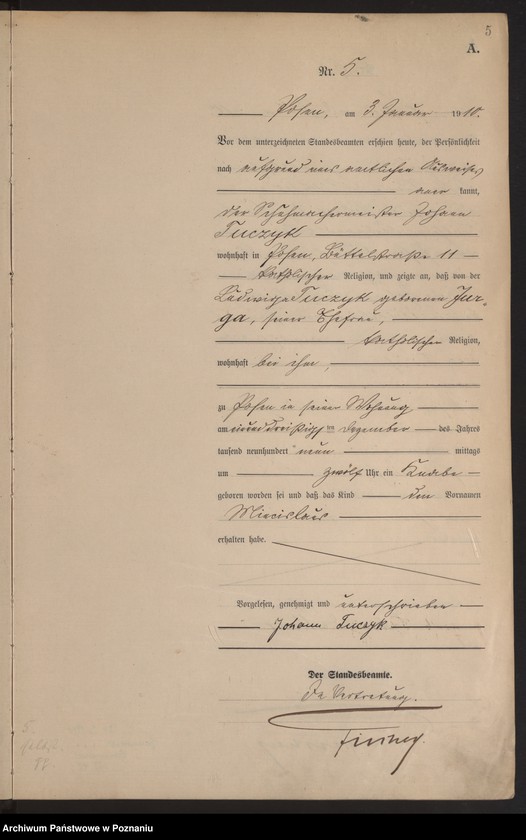 5
A.
Nr. 5.
Posen, am 3. Januar 1910.
Vor dem unterzeichneten Standesbeamten erschien heute, der Persönlichkeit
nach auf Grund eines amtlichen Ausweises
aner kannt,
der Schuhmachermeister Johann
Tuczyk
wohnhaft in Posen, Büttelstraße 11
katholischer Religion, und zeigte an, daß von der
Ludwiga Tuczyk geborenen Jur-
ga, seiner Ehefrau,
katholischer Religion,
wohnhaft bei ihm,
zu Posen in seiner Wohnung
am einunddreißigsten Dezember des Jahres
tausend neunhundert neun mittags
um zwölf Uhr ein Knabe
geboren worden sei und daß das Kind den Vornamen
Miecislaus
erhalten habe.
Vorgelesen, genehmigt und unterschrieben
Johann Tuczyk
Der Standesbeamte.
In Vertretung.
Archiwum Państwowe w Poznaniu